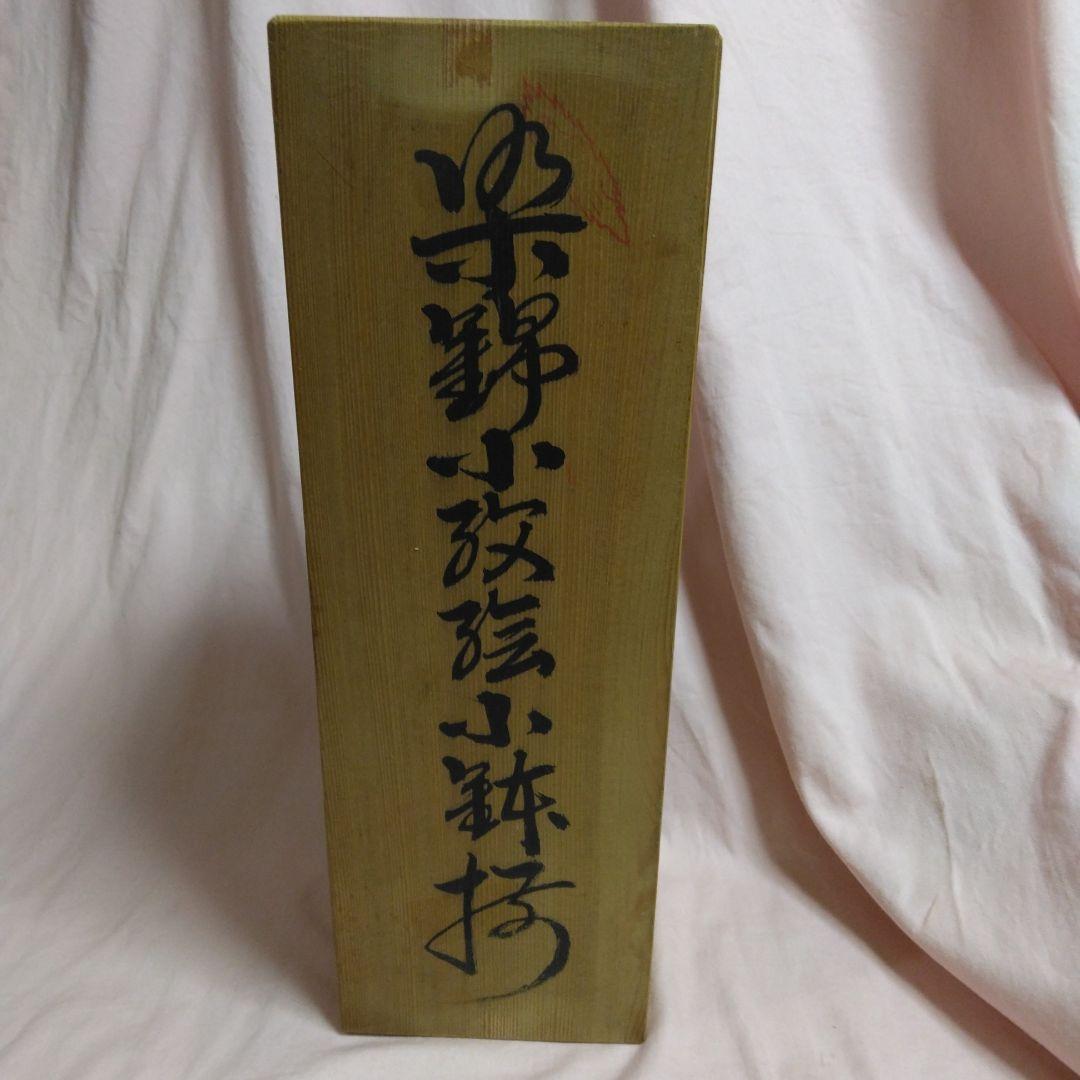 染錦小紋絵小鉢揃